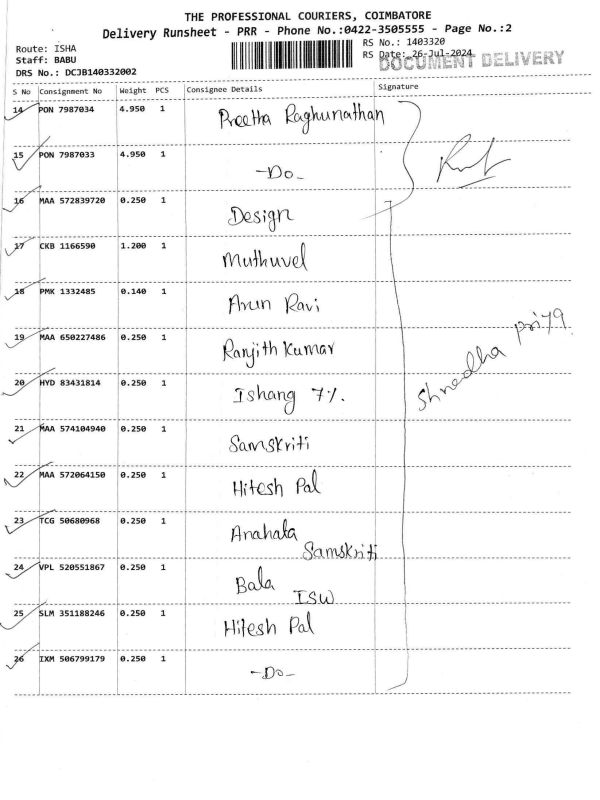 THE PROFESSIONAL COURIERS, COIMBATORE
Delivery Runsheet - PRR - Phone No.:0422-3505555 - Page No.:2
Route: ISHA
Staff: BABU
DRS No.: DCJB140332002
RS No.: 1403320
RS Date: 26-Jul-2024
DOCUMENT DELIVERY
S No Consignment No Weight PCS Consignee Details Signature
14 PON 7987034 4.950 1 Preetha Raghunathan
15 PON 7987033 4.950 1 -Do-
16 MAA 572839720 0.250 1 Design
17 CKB 1166590 1.200 1 Muthuvel
18 PMK 1332485 0.140 1 Arun Ravi
19 MAA 650227486 0.250 1 Ranjith Kumar
20 HYD 83431814 0.250 1 Ishang 7%.
Shredha priya
21 MAA 574104940 0.250 1 Samskriti
22 MAA 572064150 0.250 1 Hitesh Pal
23 TCG 50680968 0.250 1 Anahata
Samskriti
24 VPL 520551867 0.250 1 Bala
ISW
25 SLM 351188246 0.250 1 Hitesh Pal
26 IXM 506799179 0.250 1 -Do-